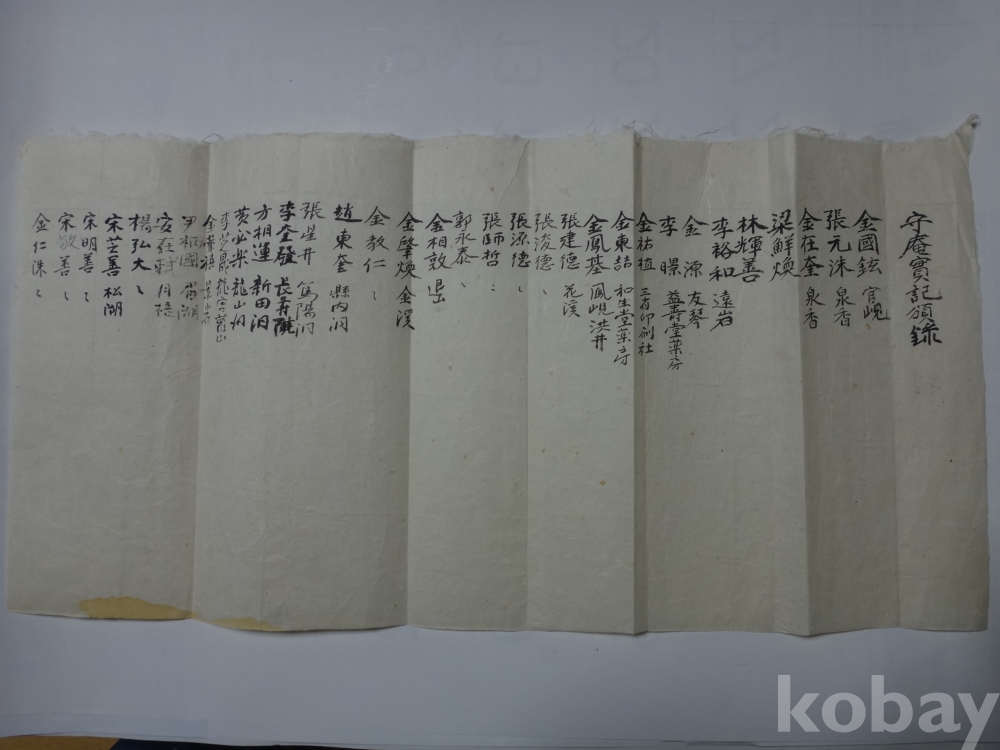 守庵實記頒錄
金國鉉 官峴
張元洙 泉香
金在奎 泉香
梁鮮煥
林輝善
李裕和 遠岩
金源 友琴
李暻 益壽堂藥房
金祐植 三省印刷社
金東喆 和生堂藥房
金鳳基 鳳峴洪井
張建德 花溪
張浚德 〻
張源德 〻
張師哲 〻
郭永泰 〻
金相敦 退
金肇煥 金溪
金教仁 〻
趙東奎 縣內洞
張星井 洞
李奎發
方相運 新田洞
黃必樂 龍山洞
楊弘大 〻
宋芸善 松湖
宋明善 〻
宋敬善 〻
金仁洙 〻
kobay